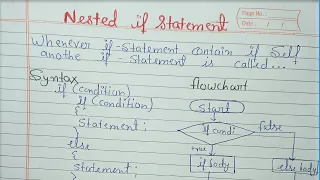 Nested if Statement
Page No.
Date
Whenever if-Statement contain if Self
anothe if - Statement is called...
Syntax
if (condition)
if (condition)
{
Statement;
}
else
{
Statement;
}
flowchart
Start
if condi
false
true
if body
else body